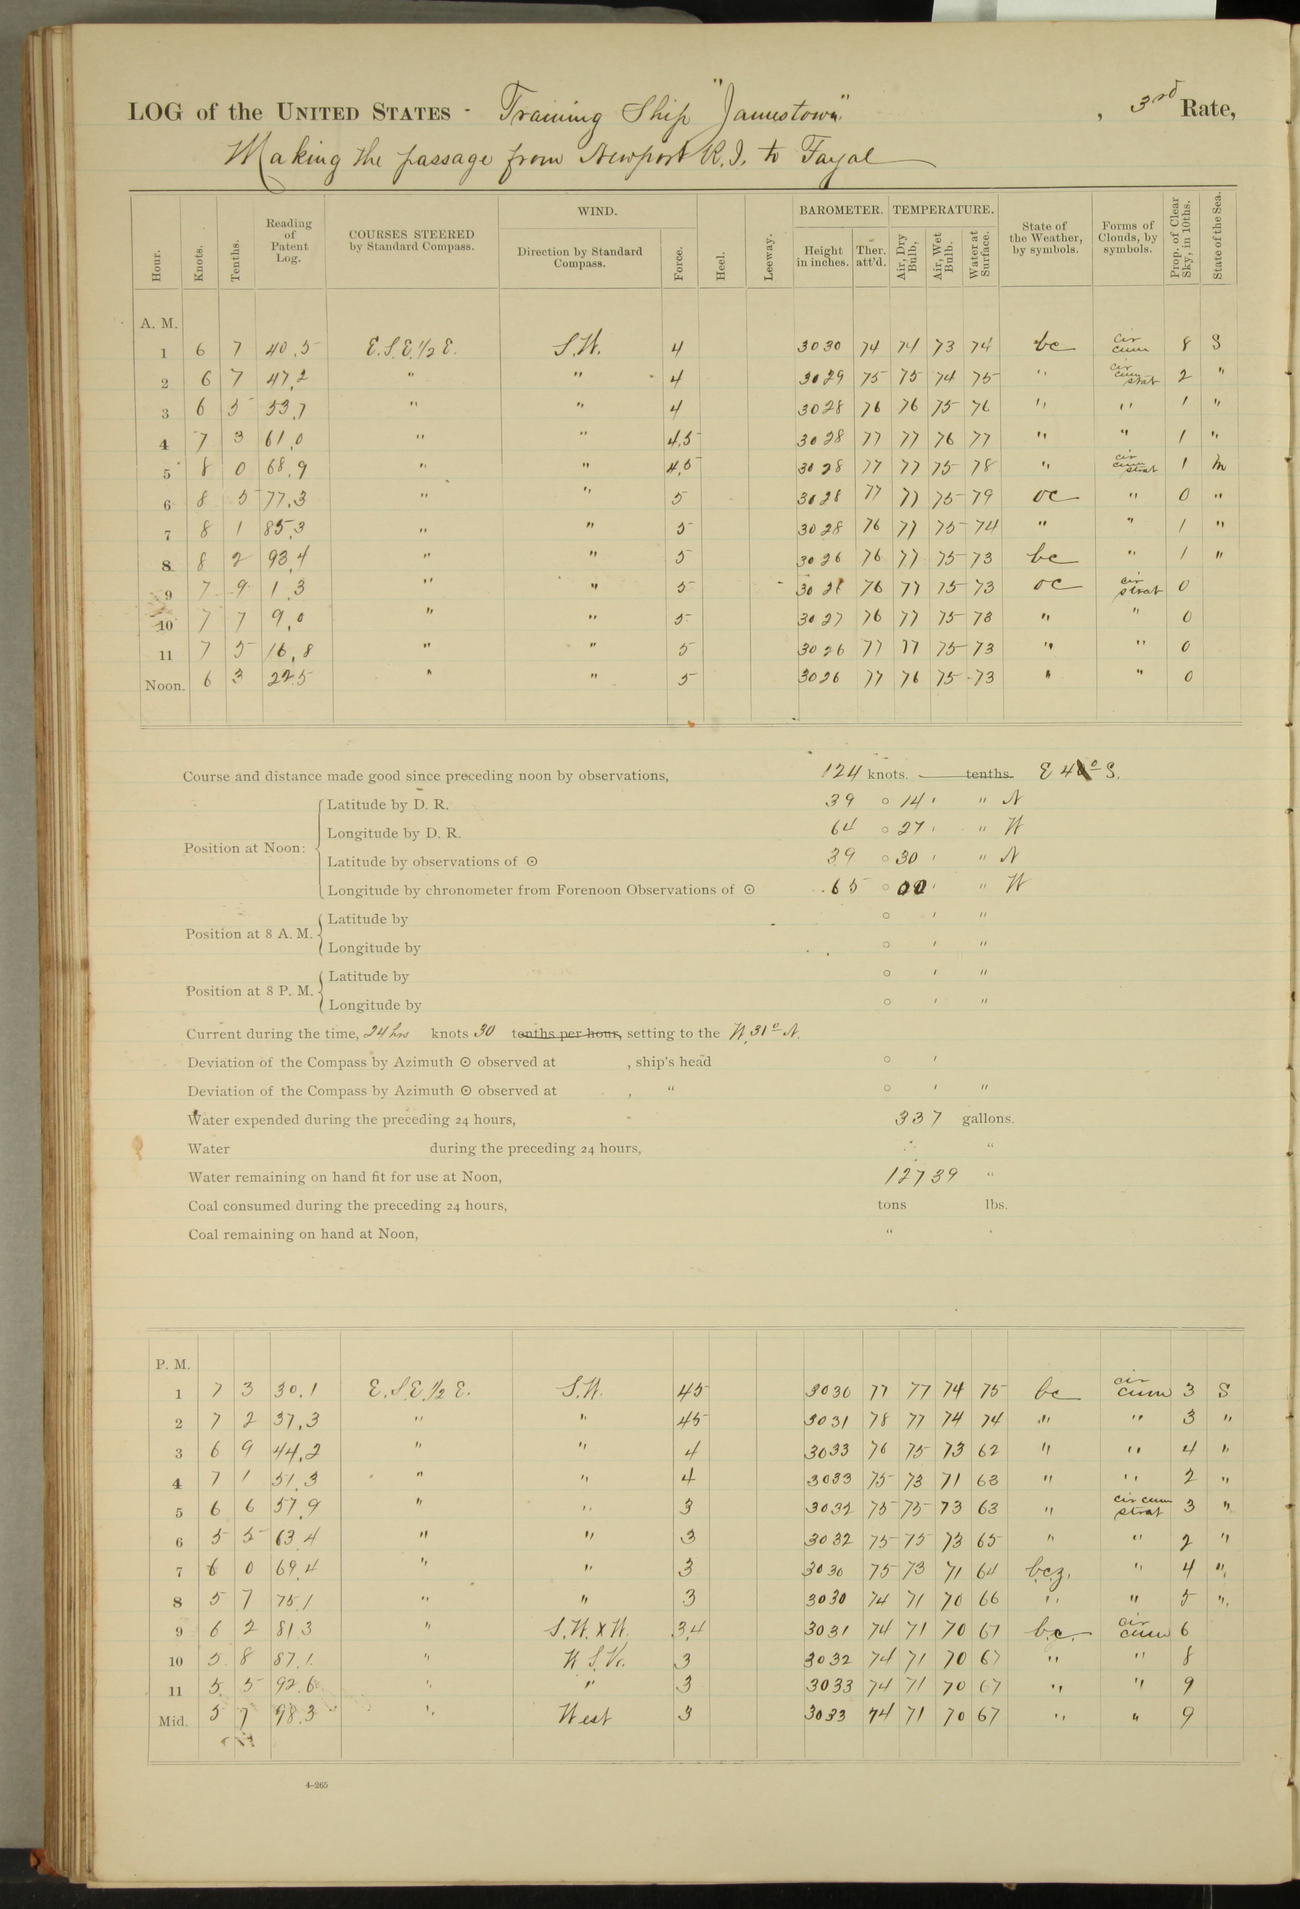 LOG of the UNITED STATES - Training Ship "Jamestown" , 3rd Rate,
Making the passage from Newport R.I. to Fayal
Hour. Knots. Tenths. Reading of Patent Log. COURSES STEERED by Standard Compass. WIND. Direction by Standard Compass. Force. Heel. Leeway. BAROMETER. Height in inches. Ther. att'd. TEMPERATURE. Air, Dry Bulb, Air, Wet Bulb. Water at Surface. State of the Weather, by symbols. Forms of Clouds, by symbols. Prop. of Clear Sky, in 10ths. State of the Sea.
A. M.
1 6 7 40.5 E.S.E.1/2 E. S.W. 4 3030 74 74 73 74 bc cir cum 8 S
2 6 7 47.2 " " 4 3029 75 75 74 75 " cir cum strat 2 "
3 6 5 53.7 " " 4 3028 76 76 75 76 " " 1 "
4 7 3 61.0 " " 4.5 3028 77 77 76 77 " " 1 "
5 8 0 68.9 " " 4.5 3028 77 77 75 78 " cir cum strat 1 m
6 8 5 77.3 " " 5 3028 77 77 75 79 oc " 0 "
7 8 1 85.3 " " 5 3028 76 77 75 74 " " 1 "
8 8 2 93.4 " " 5 3026 76 77 75 73 bc " 1 "
9 7 9 1.3 " " 5 76 77 75 73 oc cir strat 0
10 7 7 9.0 " " 5 3027 76 77 75 73 " " 0
11 7 5 16.8 " " 5 3026 77 77 75 73 " " 0
Noon. 6 3 22.5 " " 5 3026 77 76 75 73 " " 0
Course and distance made good since preceding noon by observations, 124 knots. tenths. E S.
Position at Noon:
Latitude by D. R. 39 ° 14 ' " N
Longitude by D. R. 64 ° 27 ' " W
Latitude by observations of ☉ 39 ° 30 ' " N
Longitude by chronometer from Forenoon Observations of ☉ 65 ° 00 ' " W
Position at 8 A. M.
Latitude by ° ' "
Longitude by ° ' "
Position at 8 P. M.
Latitude by ° ' "
Longitude by ° ' "
Current during the time, 24 hrs knots 30 tenths per hour, setting to the W 31° N.
Deviation of the Compass by Azimuth ☉ observed at , ship's head ° '
Deviation of the Compass by Azimuth ☉ observed at , " ° ' "
Water expended during the preceding 24 hours, 337 gallons.
Water during the preceding 24 hours, "
Water remaining on hand fit for use at Noon, 12739 "
Coal consumed during the preceding 24 hours, tons lbs.
Coal remaining on hand at Noon, "
P. M.
1 7 3 30.1 E.S.E.1/2 E. S.W. 45 3030 77 77 74 75 bc cir cum 3 S
2 7 2 37.3 " " 45 3031 78 77 74 74 " " 3 "
3 6 9 44.2 " " 4 3033 76 75 73 62 " " 4 "
4 7 1 51.3 " " 4 3033 75 73 71 63 " " 2 "
5 6 6 57.9 " " 3 3032 75 75 73 63 " cir cum strat 3 "
6 5 5 63.4 " " 3 3032 75 75 73 65 " " 2 "
7 6 0 69.4 " " 3 3030 75 73 71 64 bcz. " 4 "
8 5 7 75.1 " " 3 3030 74 71 70 66 " " 5 "
9 6 2 81.3 " S.W. x W. 3.4 3031 74 71 70 67 b.c. cir cum 6
10 5 8 87.1 " W.S.W. 3 3032 74 71 70 67 " " 8
11 5 5 92.6 " " 3 3033 74 71 70 67 " " 9
Mid. 5 7 98.3 " West 3 3033 74 71 70 67 " " 9
4-265